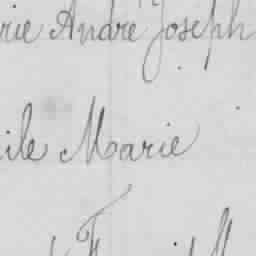 rie André Joseph
ile Marie